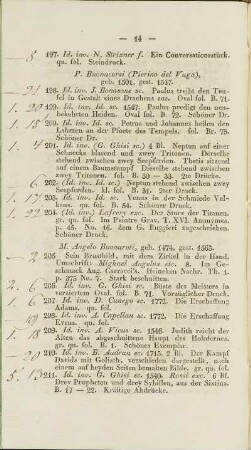 — 14 —
8 197. Id. inv. N. Strixner f. Ein Conversationsstück.
qu. fol. Steindruck.
P. Buonacorsi (Pierino del Vaga),
geb. 1501. gest. 1547.
24 198. Id. inv. J. Bonasone sc. Paulus treibt den Teu-
fel in Gestalt eines Drachens aus. Oval fol. B. 71.
199. Id. inv. Id. sc. 1547. Paulus predigt den un-
bekehrten Heiden. Oval fol. B. 72. Schöner Dr.
200. Id. inv. Id. sc. Petrus und Johannes heilen den
Lahmen an der Pforte des Tempels. fol. Br. 73.
Schöner Dr.
4 201. Id. inv. (G. Ghisi sc.) 4 Bl. Neptun auf einer
Schnecke blasend zwey Tritonen. Derselbe
stehend zwischen zwey Seepferden. Thetis sitzend
auf einem Baumstumpf. Dieselbe stehend zwischen
zwey Tritonen. fol. B. 30 — 33. Gute Dr.
6 202. (Id. inv. Id. sc.) Neptun stehend zwischen zwey
Seepferden. kl. fol. B. 31. Guter Druck.
203. Id. inv. Id. sc. Venus in der Schmiede Vul-
cans. fol. B. 54. Schöner Druck.
22 204. (Id. inv.) Lafrery exc. Der Sturz der Titanen.
gr. qu. fol. Im Peintre Grav. T. XVI. Anonymes.
p. 45. No. 46. dem G. Ruggieri zugeschrieben.
Schöner Druck.
M. Angelo Buonaroti, geb. 1474. gest. 1563.
2 205. Sein Brustbild, mit dem Zirkel in der Hand.
Umschrift: Michael Angelus etc. 8. Im Ge-
schmack Aug. Carracci's. Heineken Nachr. Th. 1.
p. 375 No. 7. Stark beschnitten.
206. Id. inv. G. Ghisi sc. Büste des Meisters in
verziertem Oval. fol. B. 71. Vorzüglicher Druck.
6 207. Id. inv. D. Cunego sc. 1772. Die Erschaffung
Adams. qu. fol.
208. Id. inv. A. Capellan sc. 1772. Die Erschaffung
Evens. qu. fol.
209. Id. inv. A. Vicus sc. 1546. Judith reicht der
Alten das abgeschnittene Haupt des Holofernes.
gr. qu. fol. B. 1. Schönes Exemplar.
20 210. Id. inv. B. Audran sc. 1715. 2 Bl. Der Kampf
Davids mit Goliath, verschieden dargestellt, nach
einem auf beyden Seiten bemalten Bilde. gr. qu. fol.
5. 13 211. Id. inv. G. Ghisi sc. 1540. Rossi exc. 6 Bl.
Drey Propheten und drey Sybillen, aus der Sixtina.
B. 17 — 22. Kräftige Abdrücke.